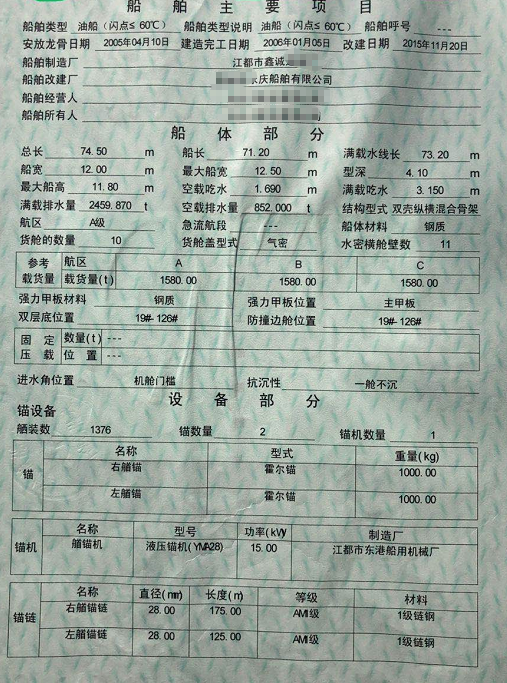 船舶主要项目
船舶类型 油船（闪点≤60℃） 船舶类型说明 油船（闪点≤60℃） 船舶呼号 ---
安放龙骨日期 2005年04月10日 建造完工日期 2006年01月05日 改建日期 2015年11月20日
船舶制造厂 江都市鑫诚
船舶改建厂 庆船舶有限公司
船舶经营人
船舶所有人
船体部分
总长 74.50 m 船长 71.20 m 满载水线长 73.20 m
船宽 12.00 m 最大船宽 12.50 m 型深 4.10 m
最大船高 11.80 m 空载吃水 1.690 m 满载吃水 3.150 m
满载排水量 2459.870 t 空载排水量 852.000 t 结构型式 双壳纵横混合骨架
航区 A级 急流航段 --- 船体材料 钢质
货舱的数量 10 货舱盖型式 气密 水密横舱壁数 11
参考载货量 航区 A B C
载货量(t) 1580.00 1580.00 1580.00
强力甲板材料 钢质 强力甲板位置 主甲板
双层底位置 19#-126# 防撞边舱位置 19#-126#
固定压载 数量(t) ---
位置 ---
进水角位置 机舱门槛 抗沉性 一舱不沉
设备部分
锚设备
舾装数 1376 锚数量 2 锚机数量 1
锚 名称 型式 重量(kg)
右艏锚 霍尔锚 1000.00
左艏锚 霍尔锚 1000.00
锚机 名称 型号 功率(kW) 制造厂
艏锚机 液压锚机(YMA28) 15.00 江都市东港船用机械厂
锚链 名称 直径(mm) 长度(m) 等级 材料
右艏锚链 28.00 175.00 AM1级 1级链钢
左艏锚链 28.00 125.00 AM1级 1级链钢